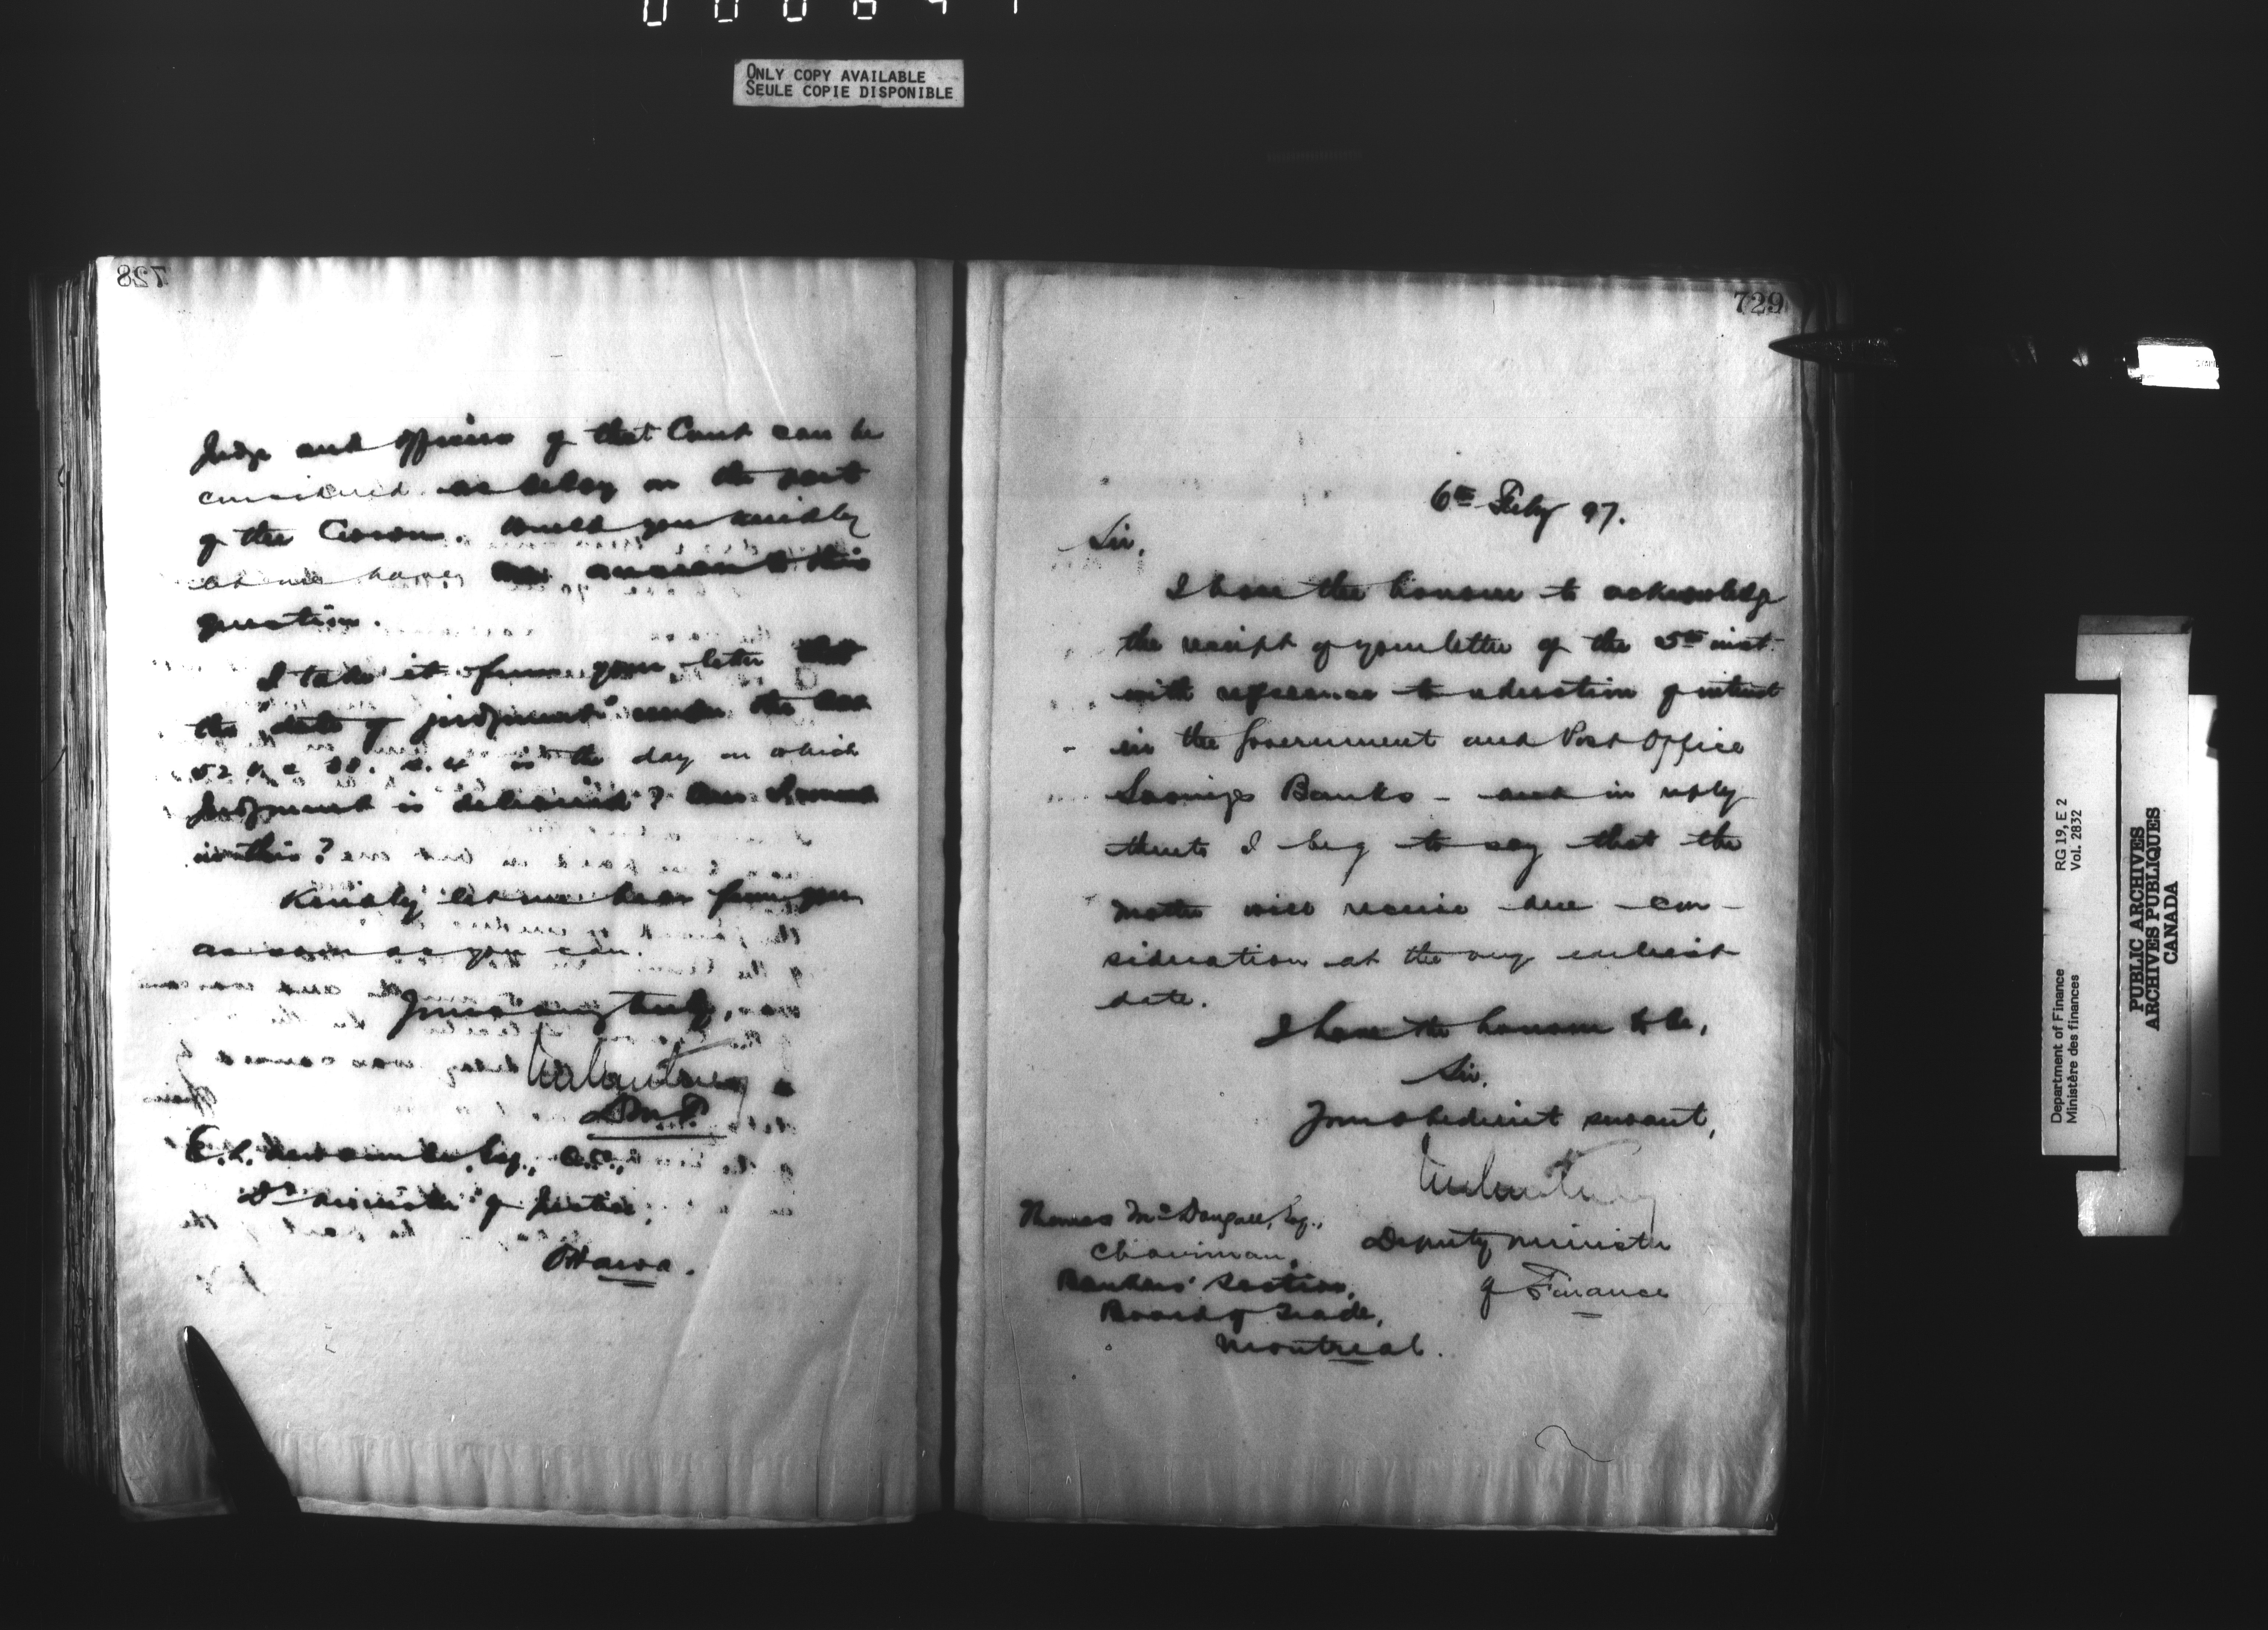 ONLY COPY AVAILABLE
SEULE COPIE DISPONIBLE
728
Judge and officers of that Court can be
considered as delay on the part
of the Crown. Would you kindly
let me have an answer to this
question.
I take it from your letter that
the "date of judgment" under the Act
52 V. c 38. s. 4 is the day on which
Judgment is delivered? Am I correct
in this?
Kindly let me hear from you
as soon as you can.
Yours very truly,
D.M.F.
E. L. Newcombe, Esq., Q.C.,
Dy Minister of Justice,
Ottawa.
729
6th Feby 97.
Sir,
I have the honour to acknowledge
the receipt of your letter of the 5th inst.
with reference to reduction of interest
in the Government and Post Office
Savings Banks - and in reply
thereto I beg to say that the
matter will receive due con-
sideration at the very earliest
date.
I have the honour to be,
Sir,
Your obedient servant,
Deputy Minister
of Finance
Thomas McDougall, Esq.,
Chairman,
Bankers' Section,
Board of Trade,
Montreal.
Department of Finance
Ministère des finances
RG 19, E 2
Vol. 2832
PUBLIC ARCHIVES
ARCHIVES PUBLIQUES
CANADA